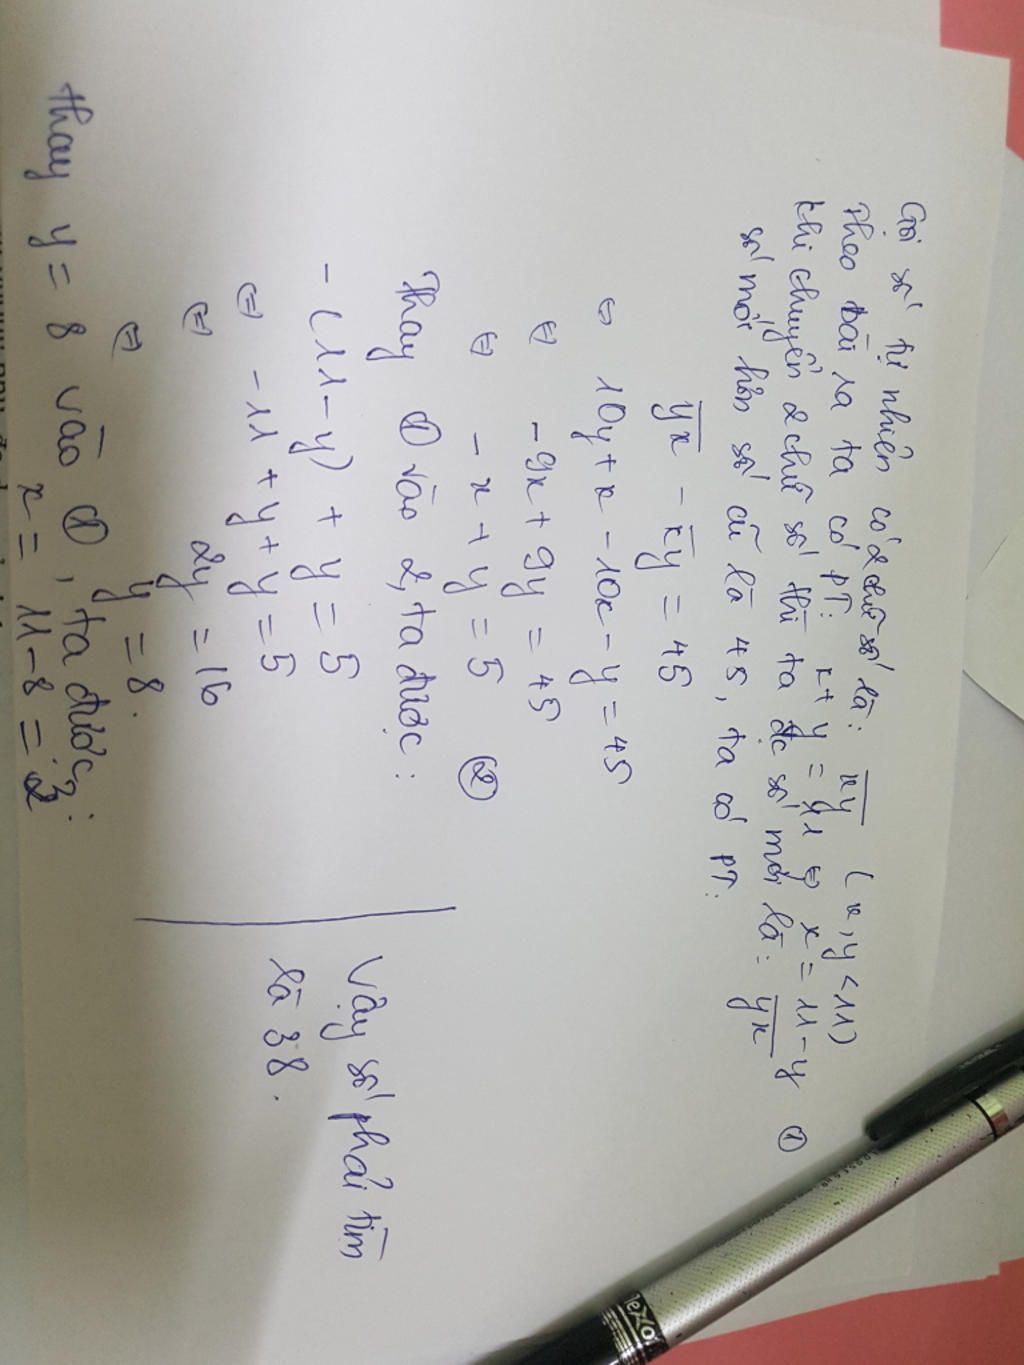 Gọi số tự nhiên có 2 chữ số là: xy (x, y < 11)
Theo bài ra ta có pT: x + y = 11 ⇔ x = 11 - y ①
Khi chuyển 2 chữ số thì ta đc số mới là: yx
số mới hơn số cũ là 45, ta có pT:
yx - xy = 45
⇔ 10y + x - 10x - y = 45
⇔ -9x + 9y = 45
⇔ - x + y = 5 ②
Thay ① vào 2, ta được:
- (11 - y) + y = 5
⇔ -11 + y + y = 5
⇔ 2y = 16
⇔ y = 8.
thay y = 8 vào ①, ta được:
x = 11 - 8 = 3
Vậy số phải tìm
là 38.
lexo